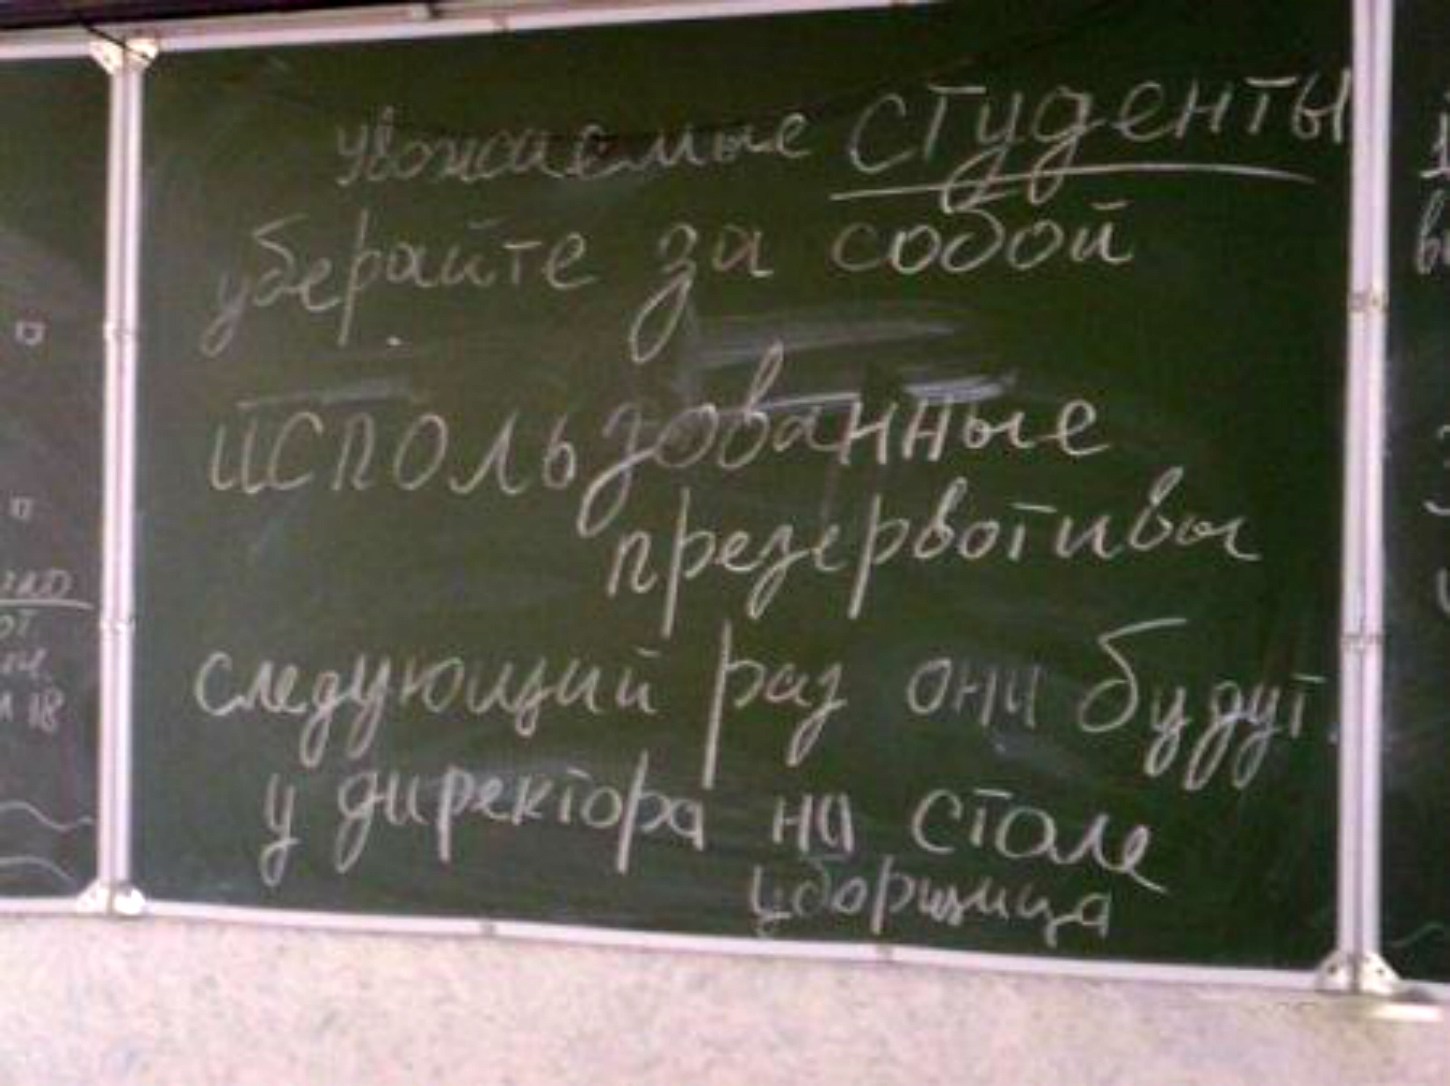 уважаемые студенты
уберайте за собой
использованные
презервотивы
следующий раз они будут
у директора на столе
уборщица